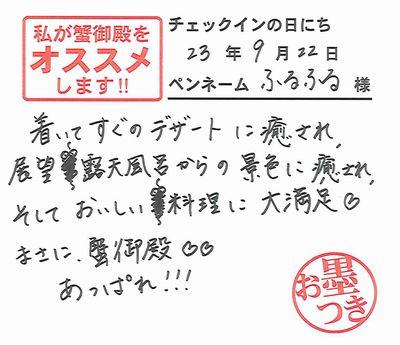 私が蟹御殿を
オススメ
します!!
チェックインの日にち
23 年 9 月 22 日
ペンネーム ふるふる 様
着いてすぐのデザートに癒され、
展望露天風呂からの景色に癒され、
そしておいしい料理に大満足♡
まさに、蟹御殿♡♡
あっぱれ!!!
お墨つき